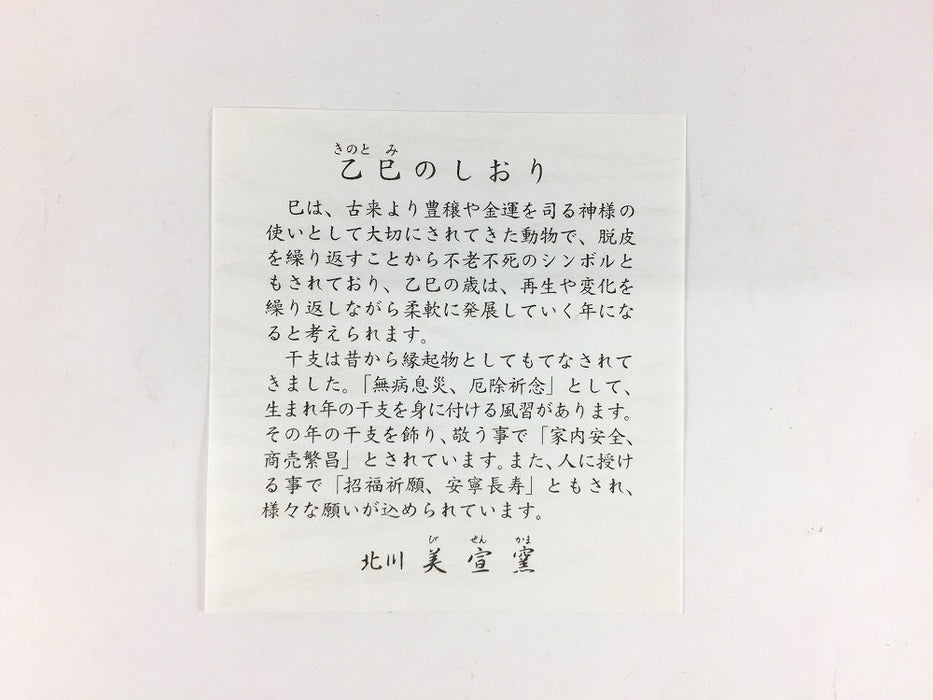 きのと み
乙巳のしおり
巳は、古来より豊穣や金運を司る神様の
使いとして大切にされてきた動物で、脱皮
を繰り返すことから不老不死のシンボルと
もされており、乙巳の歳は、再生や変化を
繰り返しながら柔軟に発展していく年にな
ると考えられます。
干支は昔から縁起物としてもてなされて
きました。「無病息災、厄除祈念」として、
生まれ年の干支を身に付ける風習があります。
その年の干支を飾り、敬う事で「家内安全、
商売繁昌」とされています。また、人に授け
る事で「招福祈願、安寧長寿」ともされ、
様々な願いが込められています。
び せん かま
北川 美宣窯